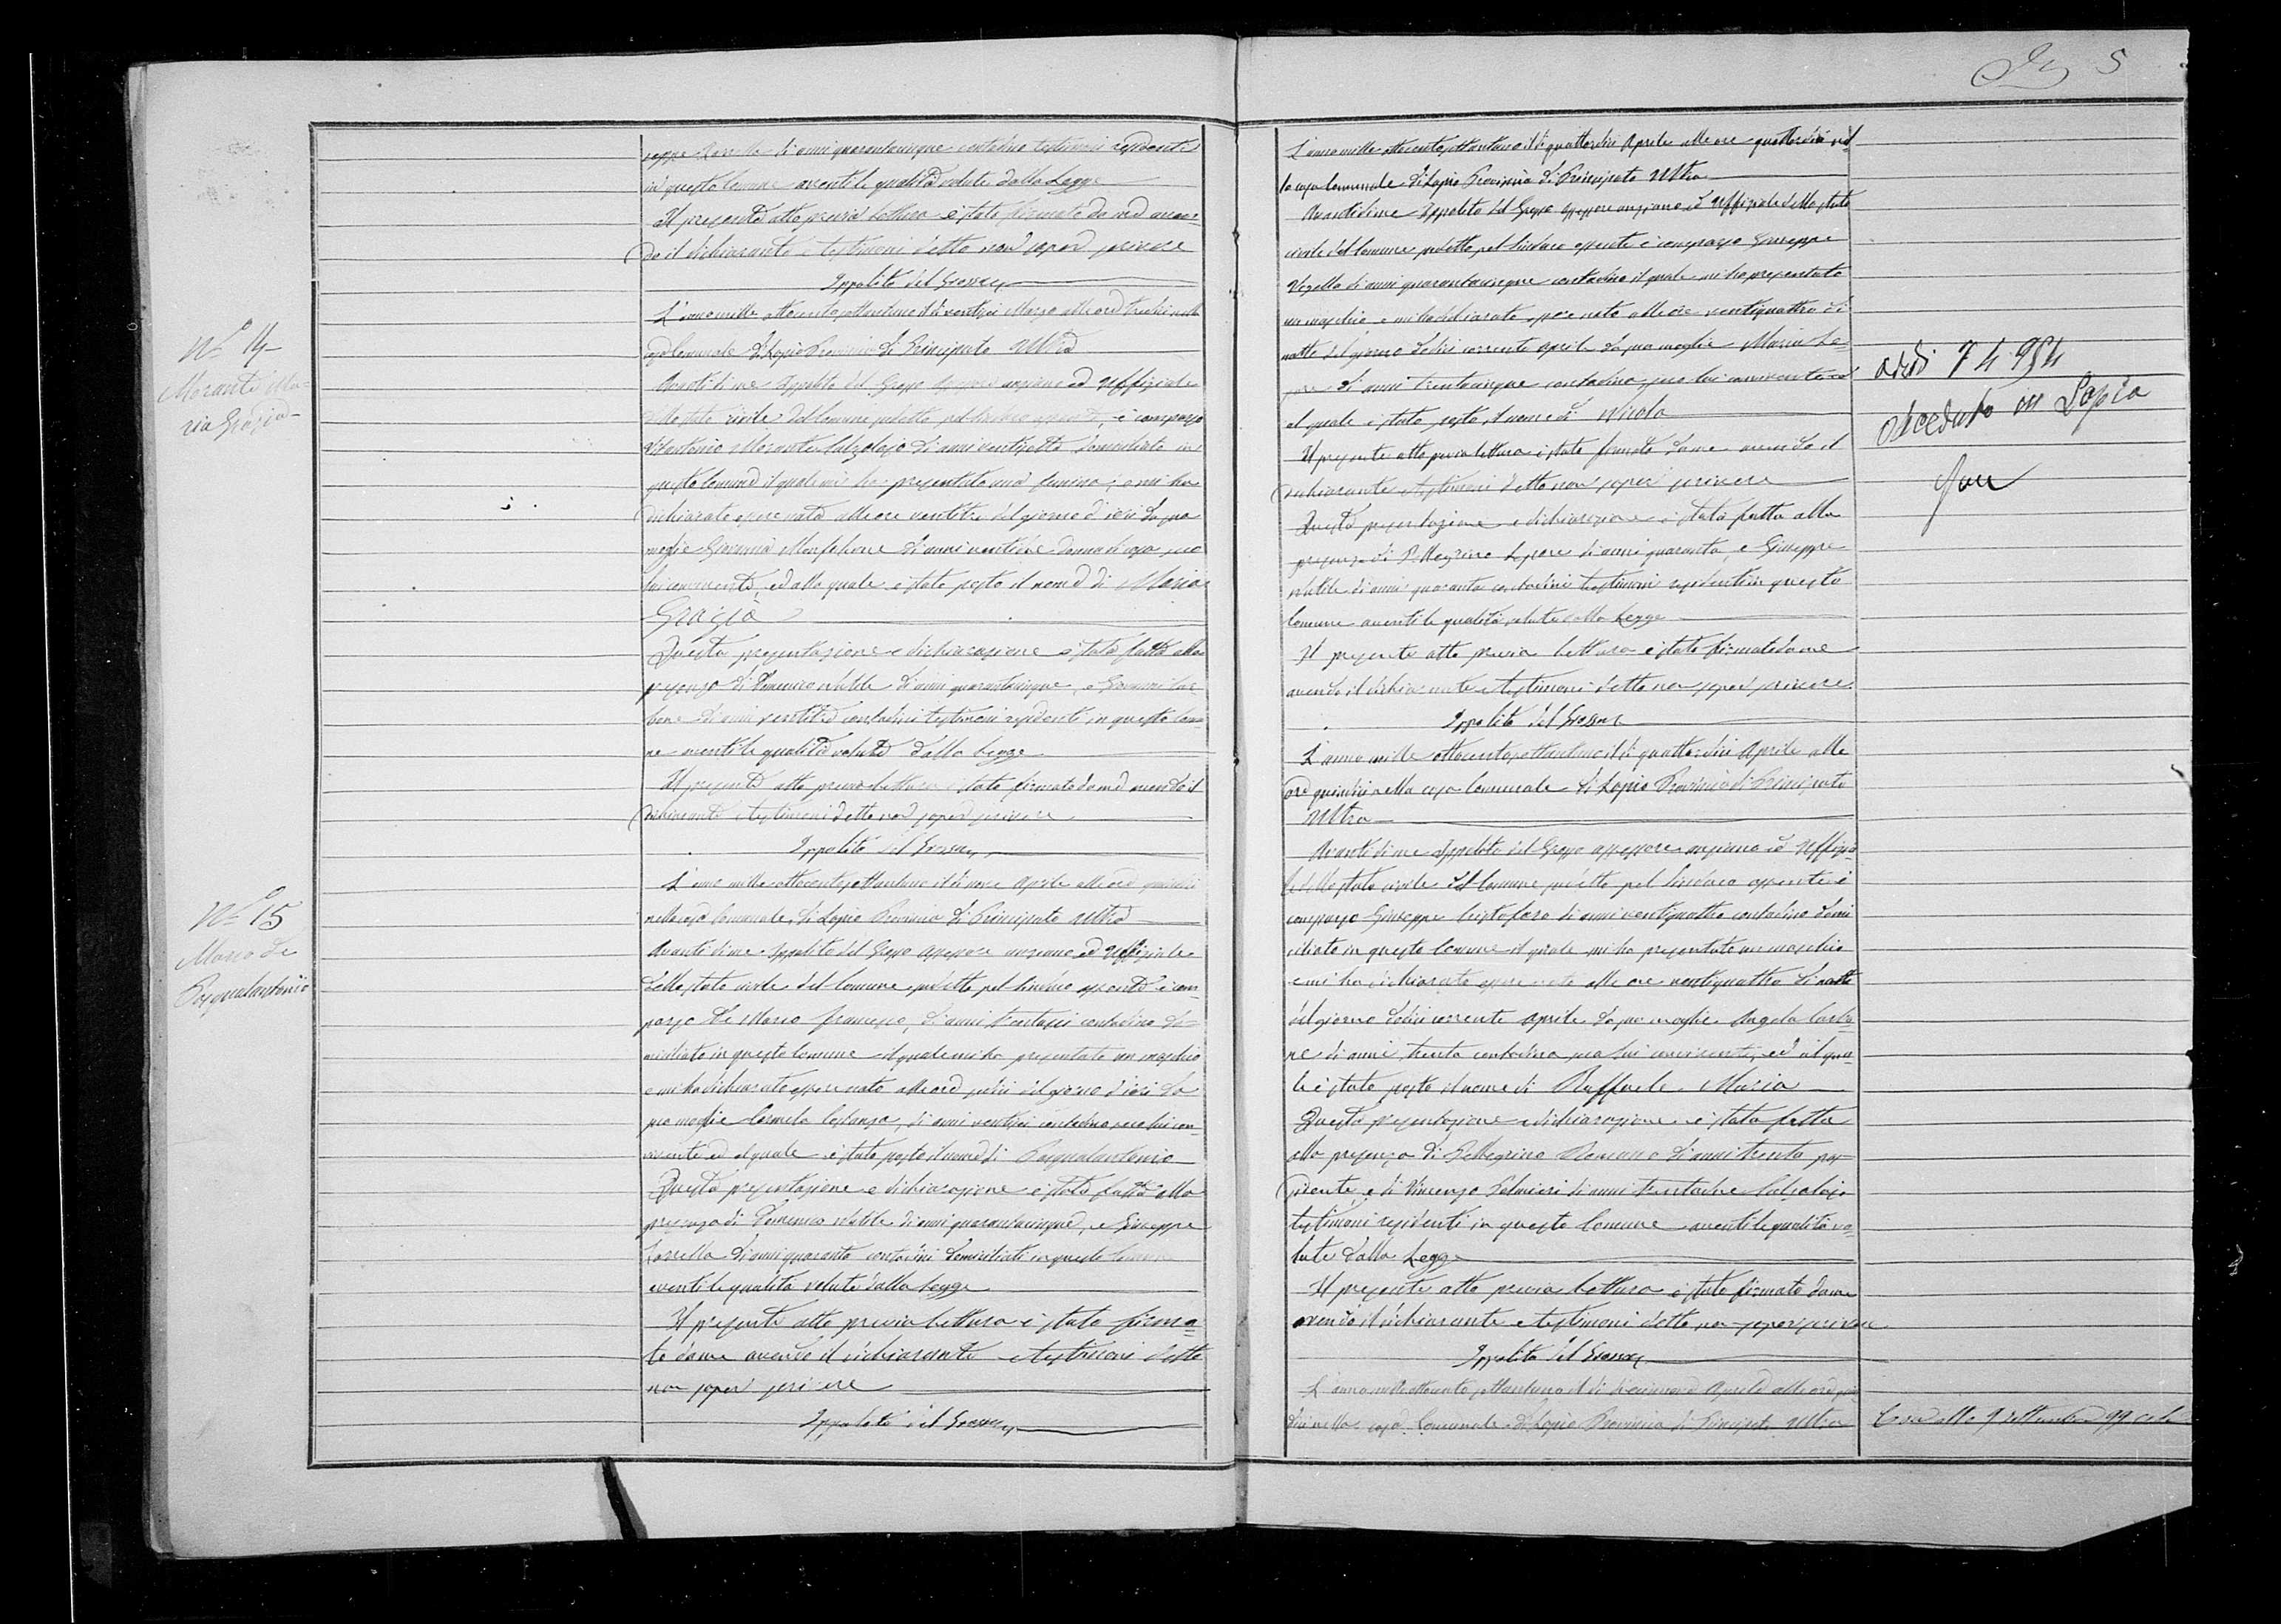 5
seppe di anni quarantacinque contadino testimoni residenti
in questo Comune aventi le qualità volute dalla Legge
Il presente atto previa lettura è stato firmato da me aven=
do il dichiarante e testimoni detto non saper scrivere
Ippolito del Grosso
N.º 14
Morante Ma=
ria Grazia
L'anno mille ottocentosettantuno il dì ventisei Marzo alle ore tredici nella
casa Comunale di Lapio Provincia di Principato Ultra
Avanti di me Ippolito del Grosso Assessore anziano ed Uffiziale
dello stato civile del Comune suddetto pel Sindaco assente, è comparso
Vitantonio Morante Calzolajo di anni ventisette domiciliato in
questo Comune il quale mi ha presentato una femina, e mi ha
dichiarato essere nata alle ore ventitre del giorno d'ieri da sua
moglie Giovanna di anni ventitre donna di casa seco
lui convivente, ed alla quale è stato posto il nome di Maria
Grazia
Questa presentazione e dichiarazione è stata fatta alla
presenza di Domenico Natale di anni quarantacinque, e Giovanni Car
bone di anni contadini testimoni residenti in questo Comu
ne aventi le qualità volute dalla Legge
Il presente atto previa lettura è stato firmato da me avendo il
dichiarante e testimoni detto non saper scrivere
Ippolito del Grosso
N.º 15
Marco De
Pasqualantonio
L'anno mille ottocentosettantuno il dì nove Aprile alle ore quindici
nella casa Comunale di Lapio Provincia di Principato Ultra
Avanti di me Ippolito del Grosso Assessore anziano ed Uffiziale
dello stato civile del Comune suddetto pel Sindaco assente è com=
parso De Marco Francesco, di anni trentasei contadino do=
miciliato in questo Comune il quale mi ha presentato un maschio
e mi ha dichiarato essere nato alle ore sedici del giorno d'ieri da
sua moglie Carmela Costanza, di anni ventisei contadina seco lui con=
vivente ed al quale è stato posto il nome di Pasqualantonio
Questa presentazione e dichiarazione è stata fatta alla
presenza di Domenico Natale di anni quarantacinque, e Giuseppe
di anni quaranta contadini domiciliati in questo Comune
aventi le qualità volute dalla Legge
Il presente atto previa lettura è stato firma=
to da me avendo il dichiarante e testimoni detto
non saper scrivere
Ippolito del Grosso
L'anno mille ottocentosettantuno il dì quattordici Aprile alle ore quattordici nel
la casa Comunale di Lapio Provincia di Principato Ultra
Avanti di me Ippolito del Grosso Assessore anziano ed Uffiziale dello stato
civile del Comune suddetto pel Sindaco assente è comparso Giuseppe
di anni quarantacinque contadino il quale mi ha presentato
un maschio e mi ha dichiarato essere nato alle ore ventiquattro di
notte del giorno dodici corrente Aprile da sua moglie Maria Le=
pore di anni trentacinque contadina seco lui convivente ed
al quale è stato posto il nome di Nicola
Il presente atto previa lettura è stato firmato da me avendo il
dichiarante e testimoni detto non saper scrivere
Questa presentazione e dichiarazione è stata fatta alla
presenza di Pellegrino Lepore di anni quaranta, e Giuseppe
Natale di anni quaranta contadini testimoni residenti in questo
Comune aventi le qualità volute dalla Legge
Il presente atto previa lettura è stato firmato da me
avendo il dichiarante e testimoni detto non saper scrivere
Ippolito del Grosso
addì 7 4 954
deceduto in Lapio
L'anno mille ottocentosettantuno il dì quattordici Aprile alle
ore quindici nella casa Comunale di Lapio Provincia di Principato
Ultra
Avanti di me Ippolito del Grosso Assessore anziano ed Uffizia=
le dello stato civile del Comune suddetto pel Sindaco assente è
comparso Giuseppe Cristofaro di anni ventiquattro contadino domi
ciliato in questo Comune il quale mi ha presentato un maschio
e mi ha dichiarato essere nato alle ore ventiquattro di notte
del giorno dodici corrente Aprile da sua moglie Angela Carbo=
ne di anni trenta contadina seco lui convivente, ed al qua=
le è stato posto il nome di Raffaele Maria
Questa presentazione e dichiarazione è stata fatta
alla presenza di Pellegrino Romano di anni trenta pos=
sidente, e di Vincenzo Palmieri di anni trentadue Calzolajo
testimoni residenti in questo Comune aventi le qualità vo=
lute dalla Legge
Il presente atto previa lettura è stato firmato da me
avendo il dichiarante e testimoni detto non saper scrivere
Ippolito del Grosso
L'anno mille ottocentosettantuno il dì diciannove Aprile alle ore
dici nella casa Comunale di Lapio Provincia di Principato Ultra